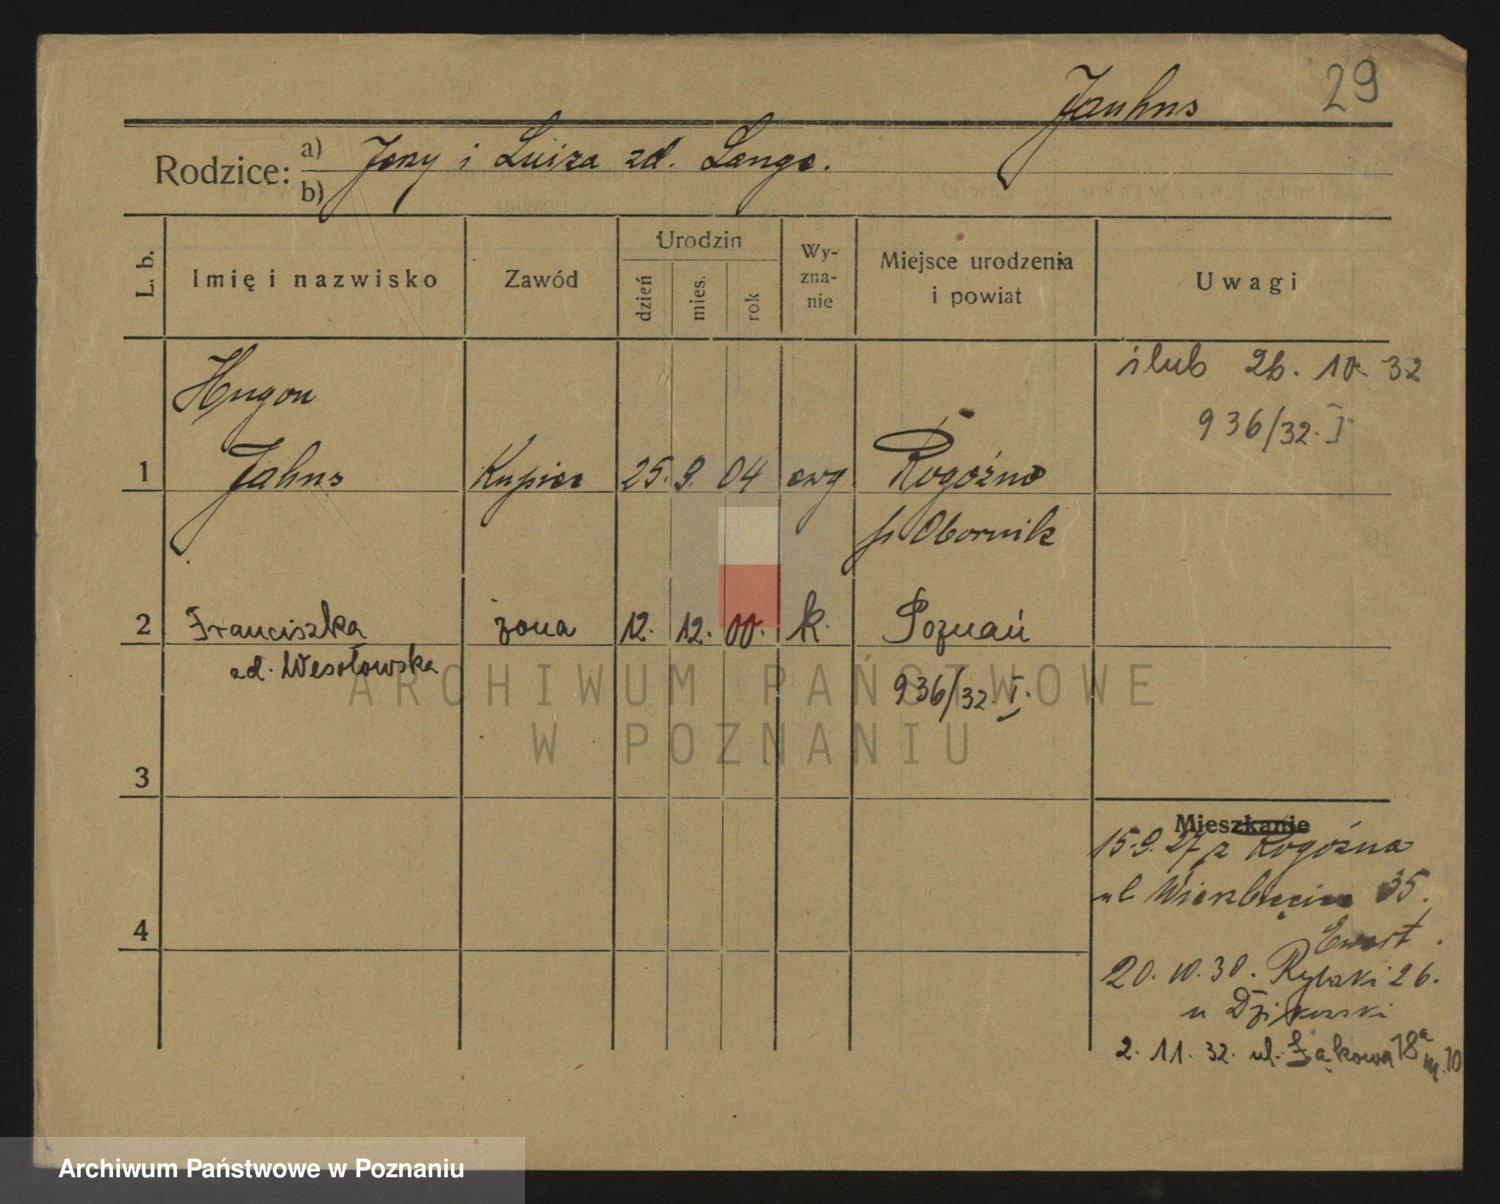 29
Jauhns
Rodzice: a) Jerzy i Luiza zd. Lange.
b)
L. b.
Imię i nazwisko
Zawód
Urodzin
dzień
mies.
rok
Wy-
zna-
nie
Miejsce urodzenia
i powiat
Uwagi
ślub 26. 10. 32
936/32. I
Hugon
1 Jahns Kupiec 25. 9. 04 ewg Rogoźno
p. Obornik
2 Franciszka żona 12. 12. 00. k. Poznań
zd. Wesołowska
936/32. I.
3
4
Mieszkanie
15.9.27 z Rogoźna
ul Wierzbięcice 35.
Ewert.
20. 10. 30. Rybaki 26.
u Dzikowski
2. 11. 32. ul. Łąkowa 18a m. 10
ARCHIWUM PAŃSTWOWE
W POZNANIU
Archiwum Państwowe w Poznaniu